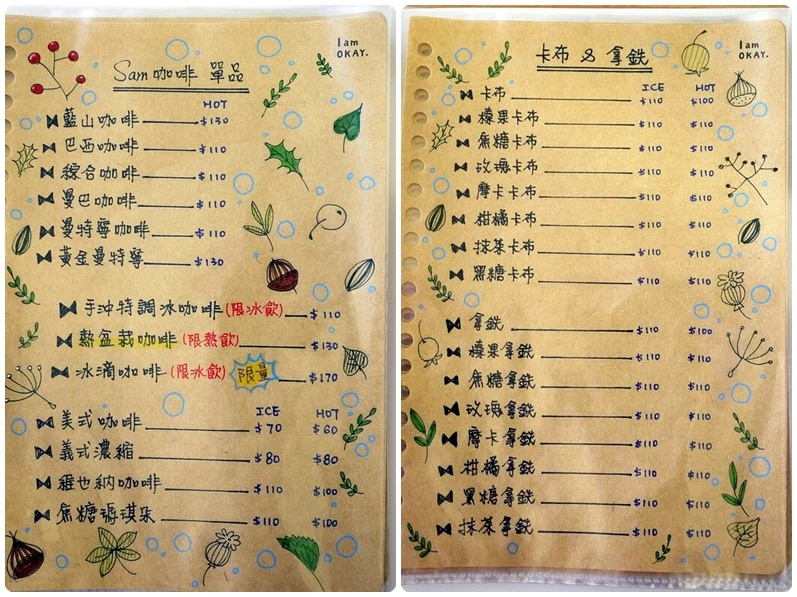 I am
OKAY.
Sam咖啡 單品
HOT
藍山咖啡 $130
巴西咖啡 $110
綜合咖啡 $110
曼巴咖啡 $110
曼特寧咖啡 $110
黃金曼特寧 $130
手沖特調冰咖啡(限冰飲) $110
熱盆栽咖啡(限熱飲) $130
冰滴咖啡(限冰飲) 限量 $170
ICE HOT
美式咖啡 $70 $60
義式濃縮 $80 $80
維也納咖啡 $110 $100
焦糖瑪淇朵 $110 $100
I am
OKAY.
卡布 & 拿鉄
ICE HOT
卡布 $110 $100
榛果卡布 $110 $110
焦糖卡布 $110 $110
玫瑰卡布 $110 $110
摩卡卡布 $110 $110
柑橘卡布 $110 $110
抹茶卡布 $110 $110
黑糖卡布 $110 $110
拿鉄 $110 $100
榛果拿鉄 $110 $110
焦糖拿鉄 $110 $110
玫瑰拿鉄 $110 $110
摩卡拿鉄 $110 $110
柑橘拿鉄 $110 $110
黑糖拿鉄 $110 $110
抹茶拿鉄 $110 $110